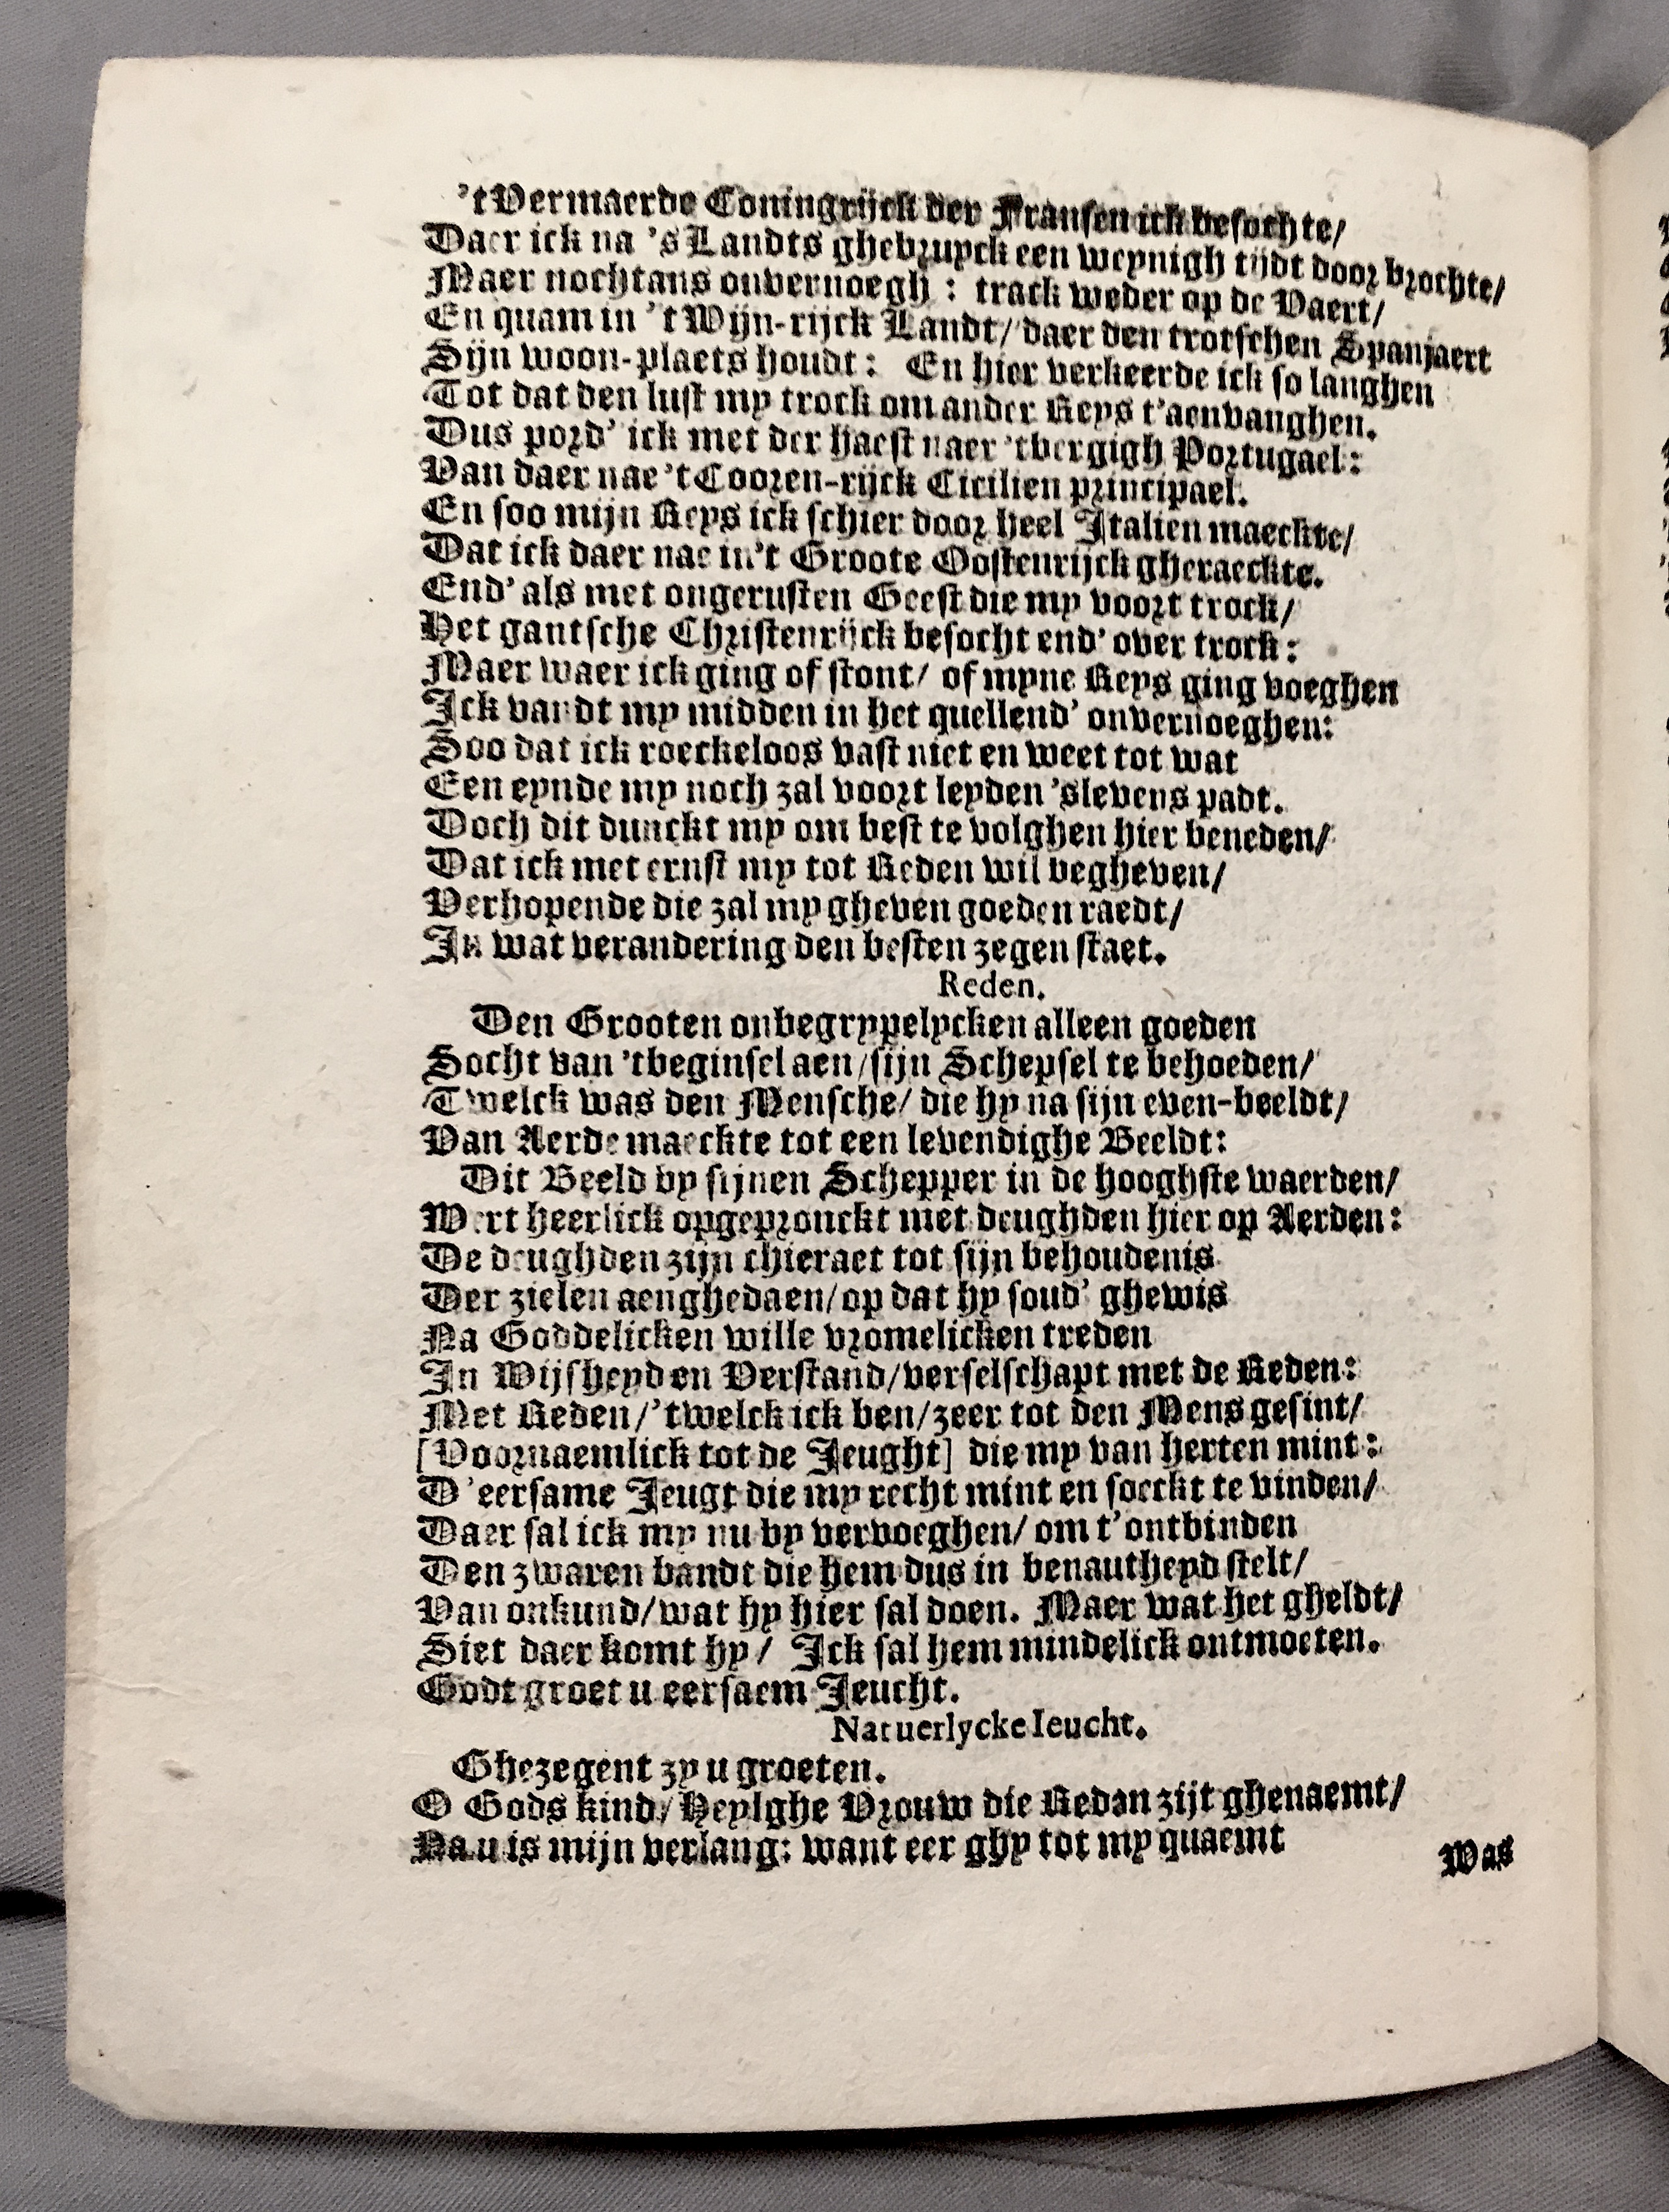 ’t Vermaerde Coningrijck der Fransen ick besochte/
Daer ick na ’s Landts ghebruyck een weynigh tijdt door brochte/
Maer nochtans onvernoegh : track weder op de Vaert/
En quam in ’t Wijn-rijck Landt/ daer den trotschen Spanjaert
Sijn woon-plaets houdt : En hier verkeerde ick so langhen
Tot dat den lust my trock om ander Reys t’aenvanghen.
Dus pord’ ick met der haest naer ’tbergigh Portugael :
Van daer nae ’t Cooren-rijck Cicilien principael.
En soo mijn Reys ick schier door heel Italien maeckte/
Dat ick daer nae in’t Groote Oostenrijck gheraeckte.
End’ als met ongerusten Geest die my voort trock/
Het gantsche Christenrijck besocht end’ over trock :
Maer waer ick ging of stont/ of myne Reys ging voeghen
Ick vandt my midden in het quellend’ onvernoeghen:
Soo dat ick roeckeloos vast niet en weet tot wat
Een eynde my noch zal voort leyden ’slevens padt.
Doch dit dunckt my om best te volghen hier beneden/
Dat ick met ernst my tot Reden wil begheven/
Verhopende die zal my gheven goeden raedt/
In wat verandering den besten zegen staet.
Reden.
Den Grooten onbegrypelycken alleen goeden
Socht van ’tbeginsel aen/sijn Schepsel te behoeden/
Twelck was den Mensche/ die hy na sijn even-beeldt/
Van Aerde maeckte tot een levendighe Beeldt:
Dit Beeld by sijnen Schepper in de hooghste waerden/
Wert heerlick opgepronckt met deughden hier op Aerden:
De deughden zijn chieraet tot sijn behoudenis
Der zielen aenghedaen/op dat hy soud’ ghewis
Na Goddelicken wille vromelicken treden
In Wijsheyd en Verstand/verselschapt met de Reden:
Met Reden/’twelck ick ben/zeer tot den Mens gesint/
[Voornaemlick tot de Jeught] die my van herten mint :
D’eersame Jeugt die my recht mint en soeckt te vinden/
Daer sal ick my nu by vervoeghen/ om t’ontbinden
Den zwaren bandt die hem dus in benautheyd stelt/
Van onkund/wat hy hier sal doen. Maer wat het gheldt/
Siet daer komt hy/ Ick sal hem mindelick ontmoeten.
Godt groet u eersaem Jeucht.
Natuerlycke Ieucht.
Ghezegent zy u groeten.
O Gods kind/ Heylghe Vrouw die Redan zijt ghenaemt/
Na u is mijn verlang: want eer ghy tot my quaemt
Was